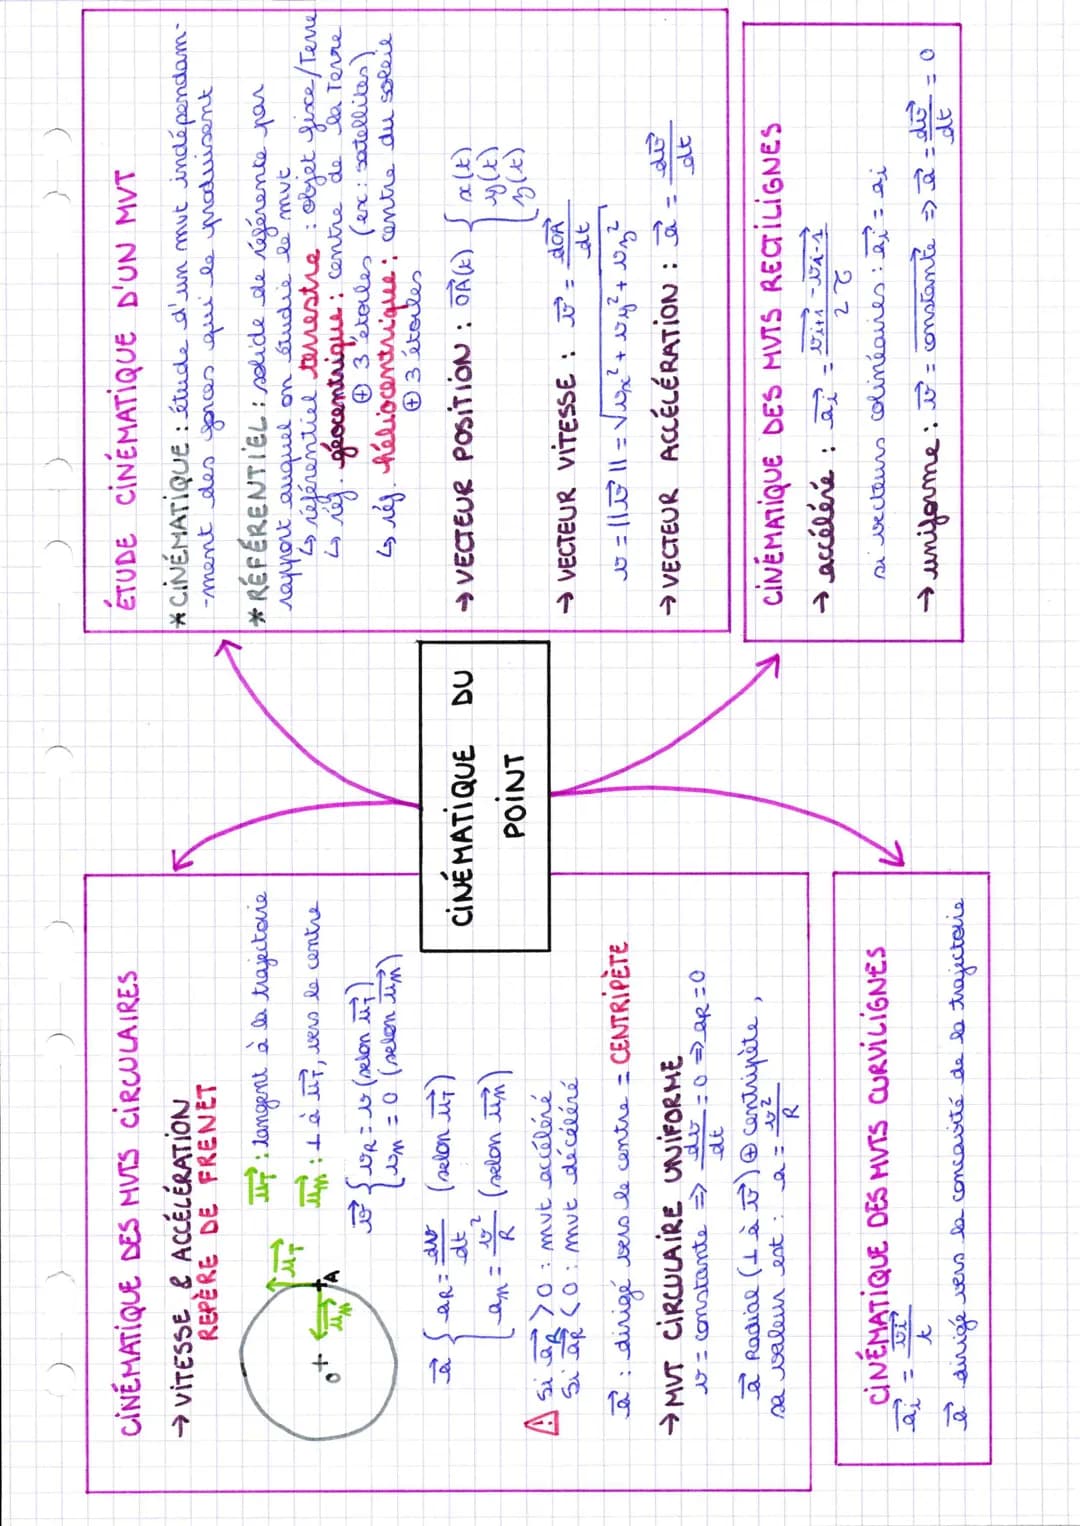 CINÉMATIQUE DU
POINT
ÉTUDE CINÉMATIQUE D'UN MVT
* CINÉMATIQUE : étude d'un mvt indépendam-
-ment des forces qui le produisent
* RÉFÉRENTIEL : solide de référence par
rapport auquel on étudie le mvt
↳ référentiel terrestre : objet fixe/Terre
↳ réf. géocentrique : centre de la Terre
⊕ 3 étoiles (ex : satellites)
↳ réf. héliocentrique : centre du soleil
⊕ 3 étoiles
→ VECTEUR POSITION : \vec{OA}(t) { x(t)
y(t)
z(t)
→ VECTEUR VITESSE : \vec{v} = \frac{d\vec{OA}}{dt}
v = ||\vec{v}|| = √(vx² + vy² + vz²)
→ VECTEUR ACCÉLÉRATION : \vec{a} = \frac{d\vec{v}}{dt}
CINÉMATIQUE DES MVTS RECTILIGNES
→ accéléré : \vec{a_i} = \frac{\vec{v_{i+1}} - \vec{v_{i-1}}}{2τ}
si vecteurs colinéaires : \vec{a_i} = a_i
→ uniforme : \vec{v} = \vec{constante} ⇒ \vec{a} = \frac{d\vec{v}}{dt} = 0
CINÉMATIQUE DES MVTS CIRCULAIRES
→ VITESSE & ACCÉLÉRATION
REPÈRE DE FRENET
O
A
\vec{u_T}
\vec{u_n}
\vec{u_T} : tangent à la trajectoire
\vec{u_n} : ⊥ à \vec{u_T}, vers le centre
\vec{v} { v_R = v (selon \vec{u_T})
v_n = 0 (selon \vec{u_n})
\vec{a} { a_R = \frac{dv}{dt} (selon \vec{u_T})
a_n = \frac{v²}{R} (selon \vec{u_n})
⚠ Si \vec{a_R} > 0 : mvt accéléré
Si \vec{a_R} < 0 : mvt décéléré
\vec{a} : dirigé vers le centre = CENTRIPÈTE
→ MVT CIRCULAIRE UNIFORME
v = constante ⇒ \frac{dv}{dt} = 0 ⇒ a_R = 0
\vec{a} Radial (⊥ à \vec{v}) ⊕ centripète,
sa valeur est : a = \frac{v²}{R}
CINÉMATIQUE DES MVTS CURVILIGNES
\vec{a_i} = \frac{\vec{v_i}}{t}
\vec{a} dirigé vers la concavité de la trajectoire